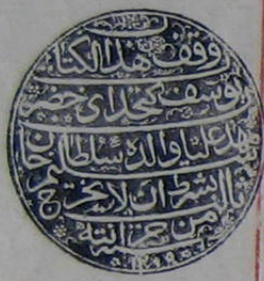 وقف هذا الكتاب
يوسف كتخداى حضرت
مهد عليا والده سلطان
سليم خان بشرط ان لا يخرج
من خزانته